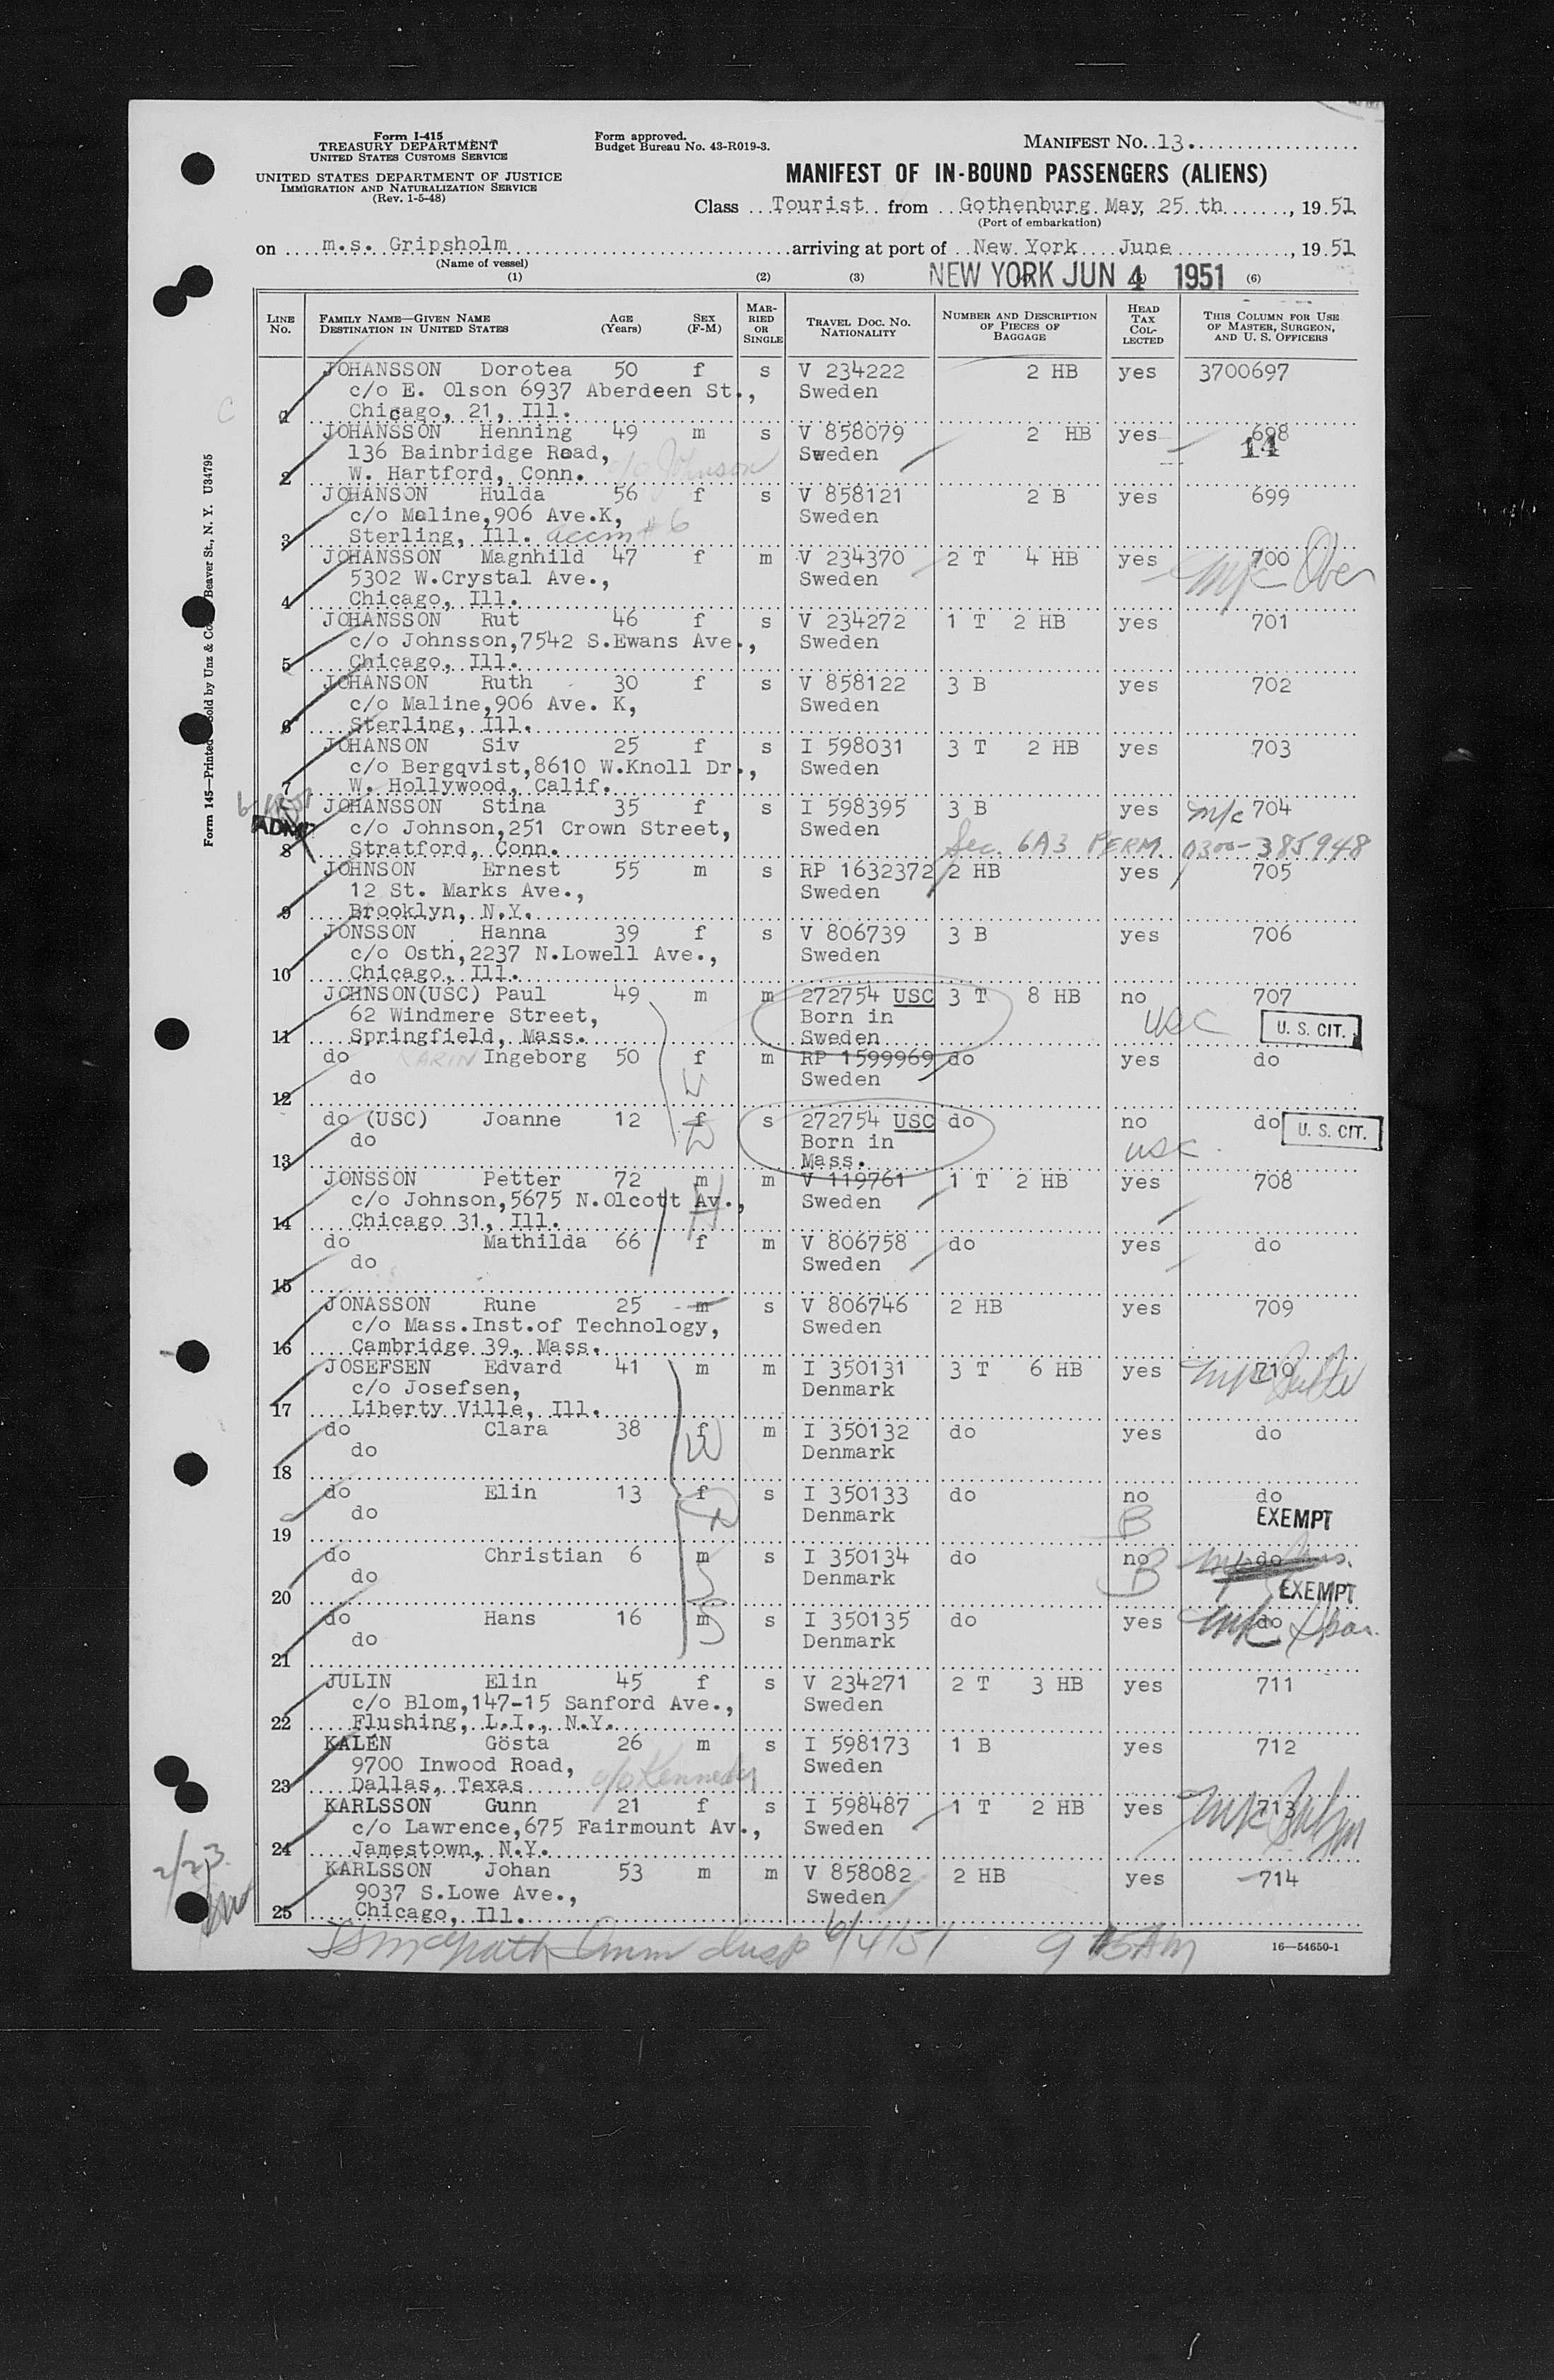 Form I-415
TREASURY DEPARTMENT
UNITED STATES CUSTOMS SERVICE
UNITED STATES DEPARTMENT OF JUSTICE
IMMIGRATION AND NATURALIZATION SERVICE
(Rev. 1-5-48)
Form approved.
Budget Bureau No. 43-R019-3.
MANIFEST NO. 13
MANIFEST OF IN-BOUND PASSENGERS (ALIENS)
Class Tourist from Gothenburg May, 25 th, 19 51
(Port of embarkation)
on m.s. Gripsholm arriving at port of New York June, 19 51
(Name of vessel)
(1) (2) (3) NEW YORK JUN 4 1951 (6)
LINE NO. FAMILY NAME—GIVEN NAME DESTINATION IN UNITED STATES AGE (Years) SEX (F-M) MARRIED OR SINGLE TRAVEL DOC. NO. NATIONALITY NUMBER AND DESCRIPTION OF PIECES OF BAGGAGE HEAD TAX COLLECTED THIS COLUMN FOR USE OF MASTER, SURGEON, AND U. S. OFFICERS
JOHANSSON Dorotea 50 f s V 234222 2 HB yes 3700697
c/o E. Olson 6937 Aberdeen St., Sweden
1 Chicago, 21, Ill.
JOHANSSON Henning 49 m s V 858079 2 HB yes 698
136 Bainbridge Road, Sweden 14
2 W. Hartford, Conn. c/o Johnson
JOHANSON Hulda 56 f s V 858121 2 B yes 699
c/o Maline,906 Ave.K, Sweden
3 Sterling, Ill. accm # 6
JOHANSSON Magnhild 47 f m V 234370 2 T 4 HB yes 700
5302 W.Crystal Ave., Sweden m/c
4 Chicago, Ill.
JOHANSSON Rut 46 f s V 234272 1 T 2 HB yes 701
c/o Johnsson,7542 S.Ewans Ave., Sweden
5 Chicago, Ill.
JOHANSON Ruth 30 f s V 858122 3 B yes 702
c/o Maline,906 Ave. K, Sweden
6 Sterling, Ill.
JOHANSON Siv 25 f s I 598031 3 T 2 HB yes 703
c/o Bergqvist,8610 W.Knoll Dr., Sweden
7 W. Hollywood, Calif.
JOHANSSON Stina 35 f s I 598395 3 B yes m/c 704
ADM c/o Johnson,251 Crown Street, Sweden
8 Stratford, Conn. Sec. 6A3 PERM. 0300-385948
JOHNSON Ernest 55 m s RP 1632372 2 HB yes 705
12 St. Marks Ave., Sweden
9 Brooklyn, N.Y.
JONSSON Hanna 39 f s V 806739 3 B yes 706
c/o Osth,2237 N.Lowell Ave., Sweden
10 Chicago, Ill.
JOHNSON(USC) Paul 49 m m 272754 USC 3 T 8 HB no 707
62 Windmere Street, Born in USC U. S. CIT.
11 Springfield, Mass. Sweden
do KARIN Ingeborg 50 f m RP 1599969 do yes do
do W Sweden
12
do (USC) Joanne 12 f s 272754 USC do no do U. S. CIT.
do D Born in USC
13 Mass.
JONSSON Petter 72 m m V 119761 1 T 2 HB yes 708
c/o Johnson,5675 N.Olcott Av., Sweden
14 Chicago 31, Ill.
do Mathilda 66 f m V 806758 do yes do
do Sweden
15
JONASSON Rune 25 m s V 806746 2 HB yes 709
c/o Mass.Inst.of Technology, Sweden
16 Cambridge 39, Mass.
JOSEFSEN Edvard 41 m m I 350131 3 T 6 HB yes 710
c/o Josefsen, Denmark
17 Liberty Ville, Ill.
do Clara 38 f m I 350132 do yes do
do W Denmark
18
do Elin 13 f s I 350133 do no do
do D Denmark B EXEMPT
19
do Christian 6 m s I 350134 do no do
do S Denmark B EXEMPT
20
do Hans 16 m s I 350135 do yes do
do S Denmark
21
JULIN Elin 45 f s V 234271 2 T 3 HB yes 711
c/o Blom,147-15 Sanford Ave., Sweden
22 Flushing, L.I., N.Y.
KALÉN Gösta 26 m s I 598173 1 B yes 712
9700 Inwood Road, Sweden
23 Dallas, Texas c/o Kennedy
KARLSSON Gunn 21 f s I 598487 1 T 2 HB yes 713
c/o Lawrence,675 Fairmount Av., Sweden
24 Jamestown, N.Y.
KARLSSON Johan 53 m m V 858082 2 HB yes 714
9037 S.Lowe Ave., Sweden
25 Chicago, Ill.
2/23
Imm Insp 6/4/51 9 15 AM
16—54650-1
Form 145—Printed Sold by Unz & Co Beaver St., N. Y. U34795